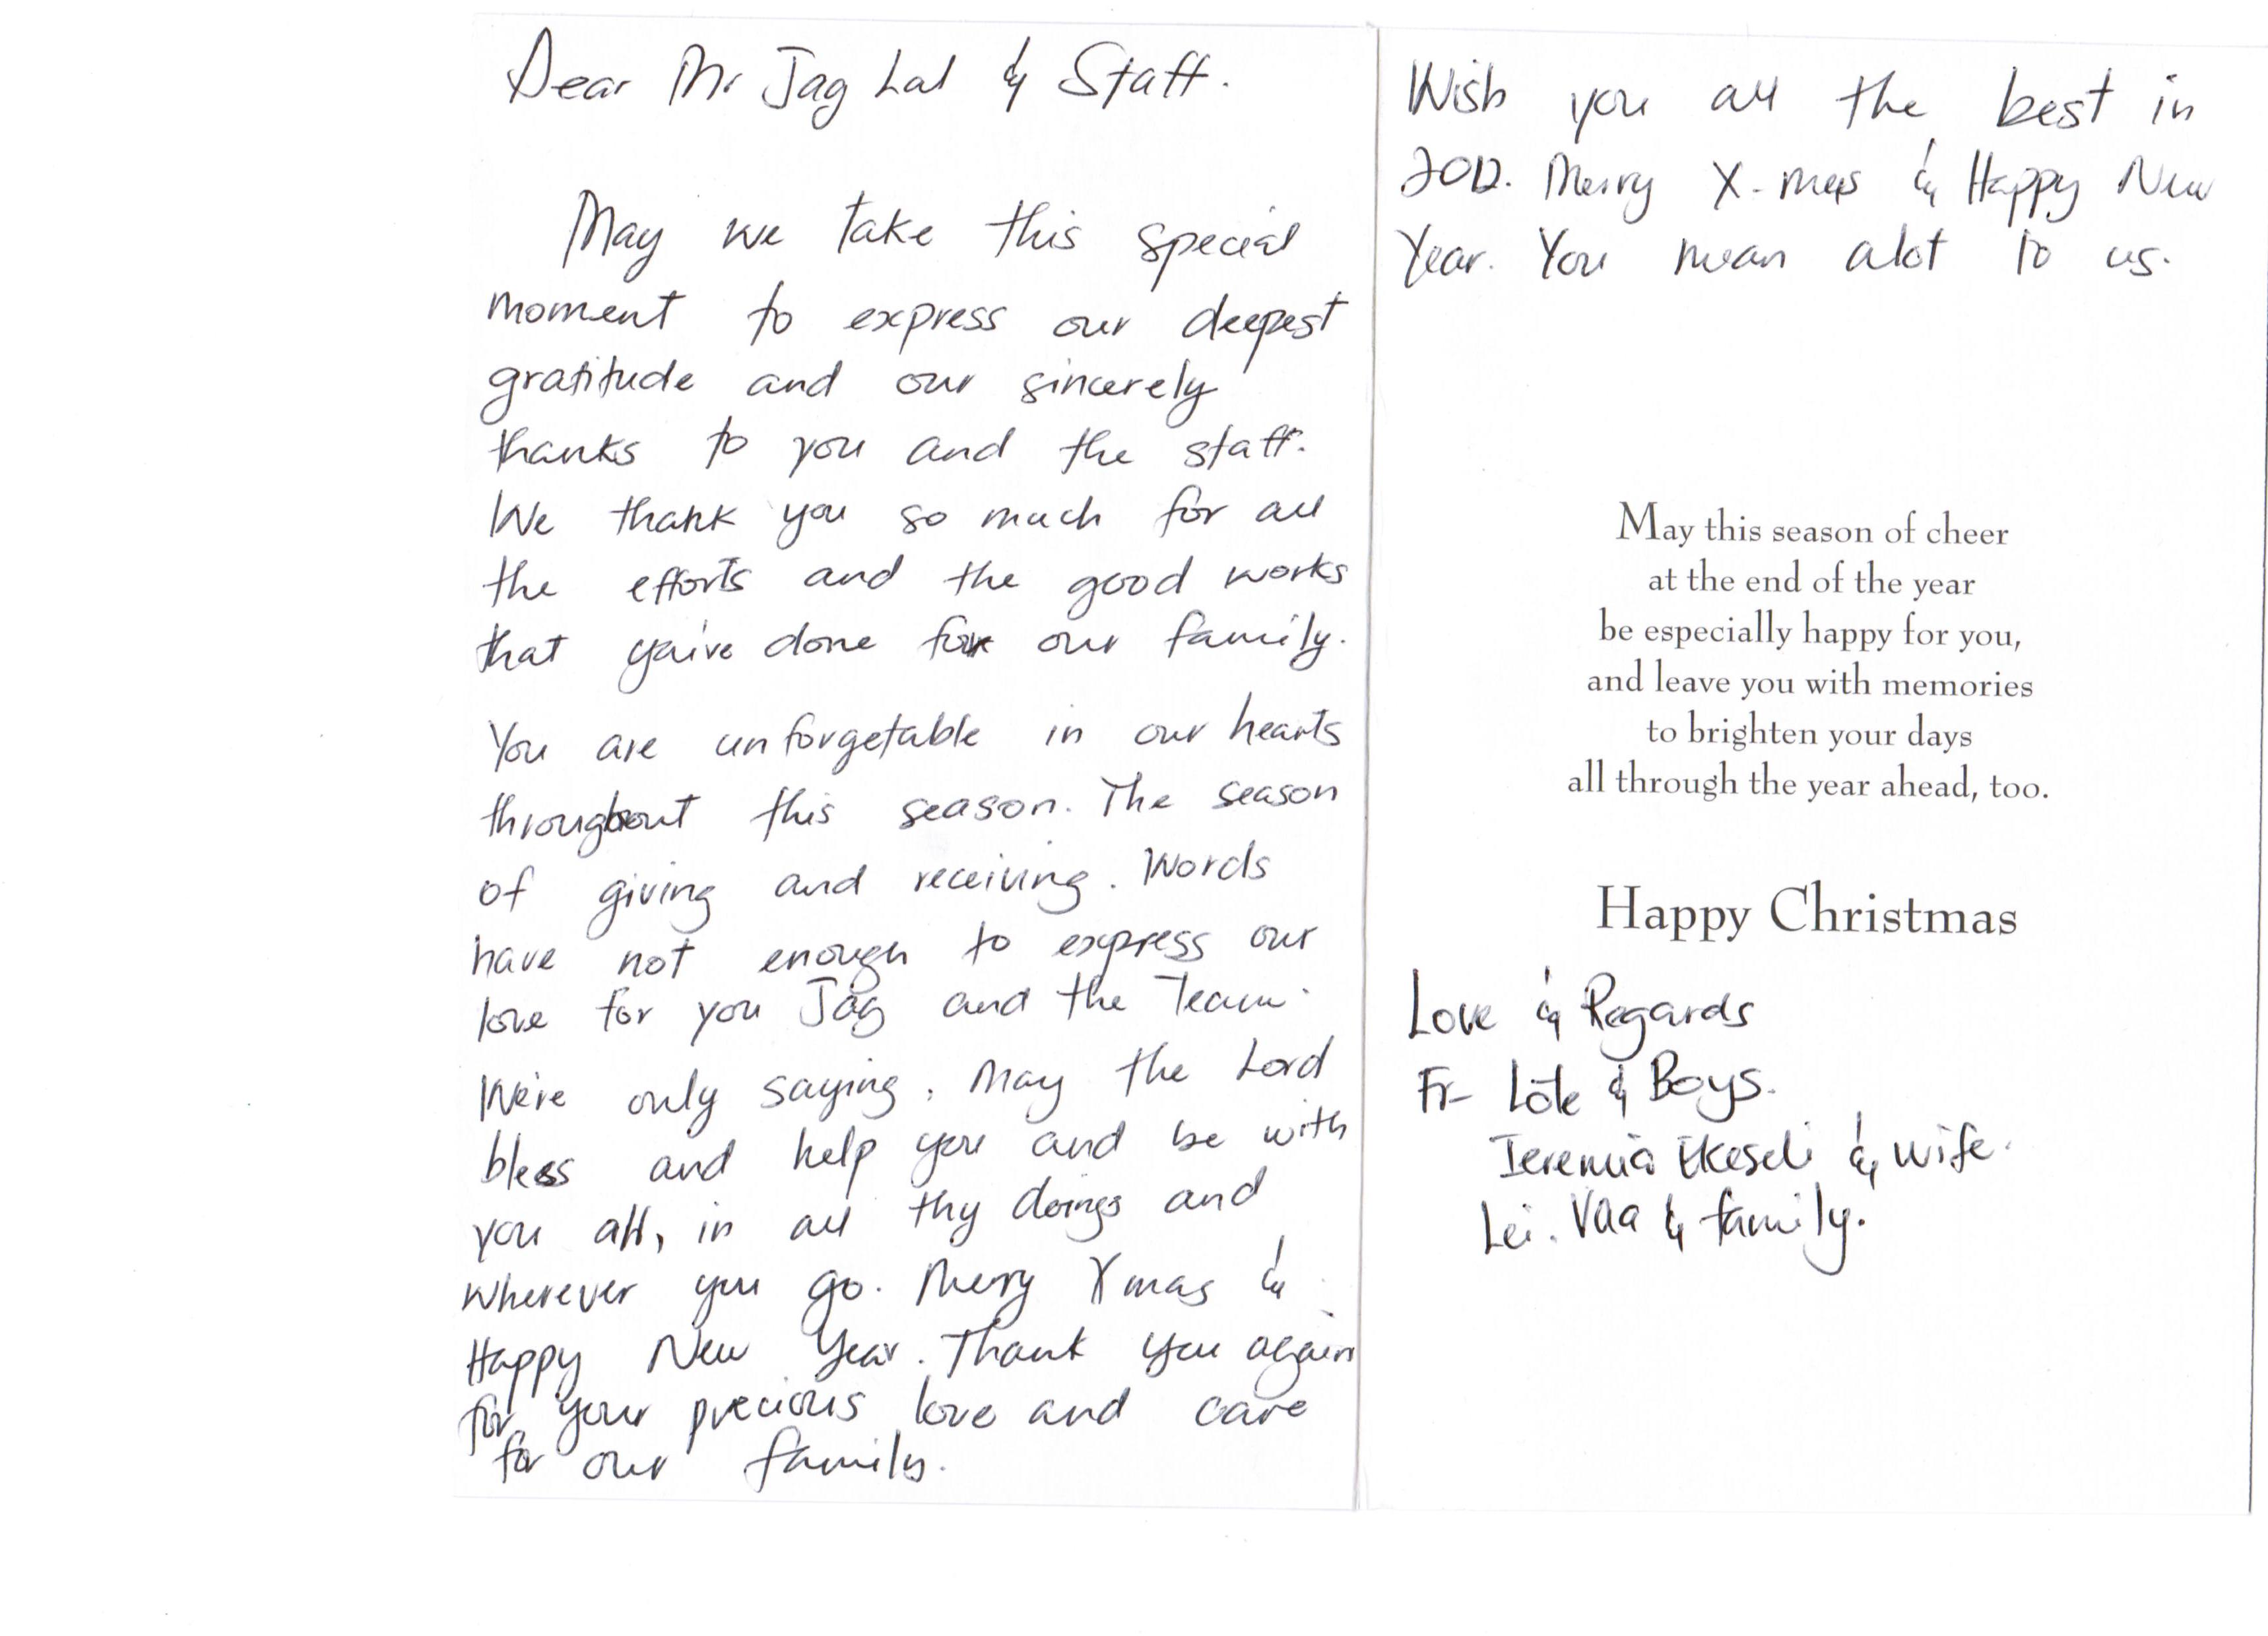 Dear Mr Jag Lal & Staff.
May we take this special
moment to express our deepest
gratitude and our sincerely
thanks to you and the staff.
We thank you so much for all
the efforts and the good works
that you've done for our family.
You are unforgetable in our hearts
throughout this season. The season
of giving and receiving. Words
have not enough to express our
love for you Jag and the Team.
We're only saying, May the Lord
bless and help you and be with
you all, in all thy doings and
wherever you go. Merry Xmas &
Happy New Year. Thank you again
for your precious love and care
for our family.
Wish you all the best in
2012. Merry X-mas & Happy New
Year. You mean alot to us.
May this season of cheer
at the end of the year
be especially happy for you,
and leave you with memories
to brighten your days
all through the year ahead, too.
Happy Christmas
Love & Regards
Fr- Lote & Boys.
Ieremia Ekeseli & wife.
Lei. Vaa & family.